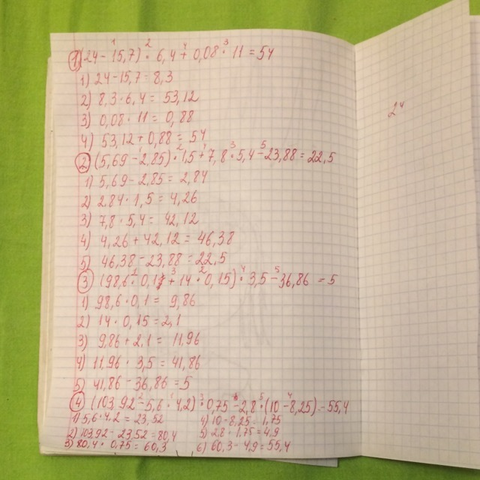 ① (24 - 15,7) · 6,4 + 0,08 · 11 = 54
1) 24 - 15,7 = 8,3
2) 8,3 · 6,4 = 53,12
3) 0,08 · 11 = 0,88
4) 53,12 + 0,88 = 54
② (5,69 - 2,85) · 1,5 + 7,8 · 5,4 - 23,88 = 22,5
1) 5,69 - 2,85 = 2,84
2) 2,84 · 1,5 = 4,26
3) 7,8 · 5,4 = 42,12
4) 4,26 + 42,12 = 46,38
5) 46,38 - 23,88 = 22,5
③ (98,6 · 0,1 + 14 · 0,15) · 3,5 - 36,86 = 5
1) 98,6 · 0,1 = 9,86
2) 14 · 0,15 = 2,1
3) 9,86 + 2,1 = 11,96
4) 11,96 · 3,5 = 41,86
5) 41,86 - 36,86 = 5
④ (103,92 - 5,6 · 4,2) · 0,75 - 2,8 · (10 - 8,25) = 55,4
1) 5,6 · 4,2 = 23,52 4) 10 - 8,25 = 1,75
2) 103,92 - 23,52 = 80,4 5) 2,8 · 1,75 = 4,9
3) 80,4 · 0,75 = 60,3 6) 60,3 - 4,9 = 55,4